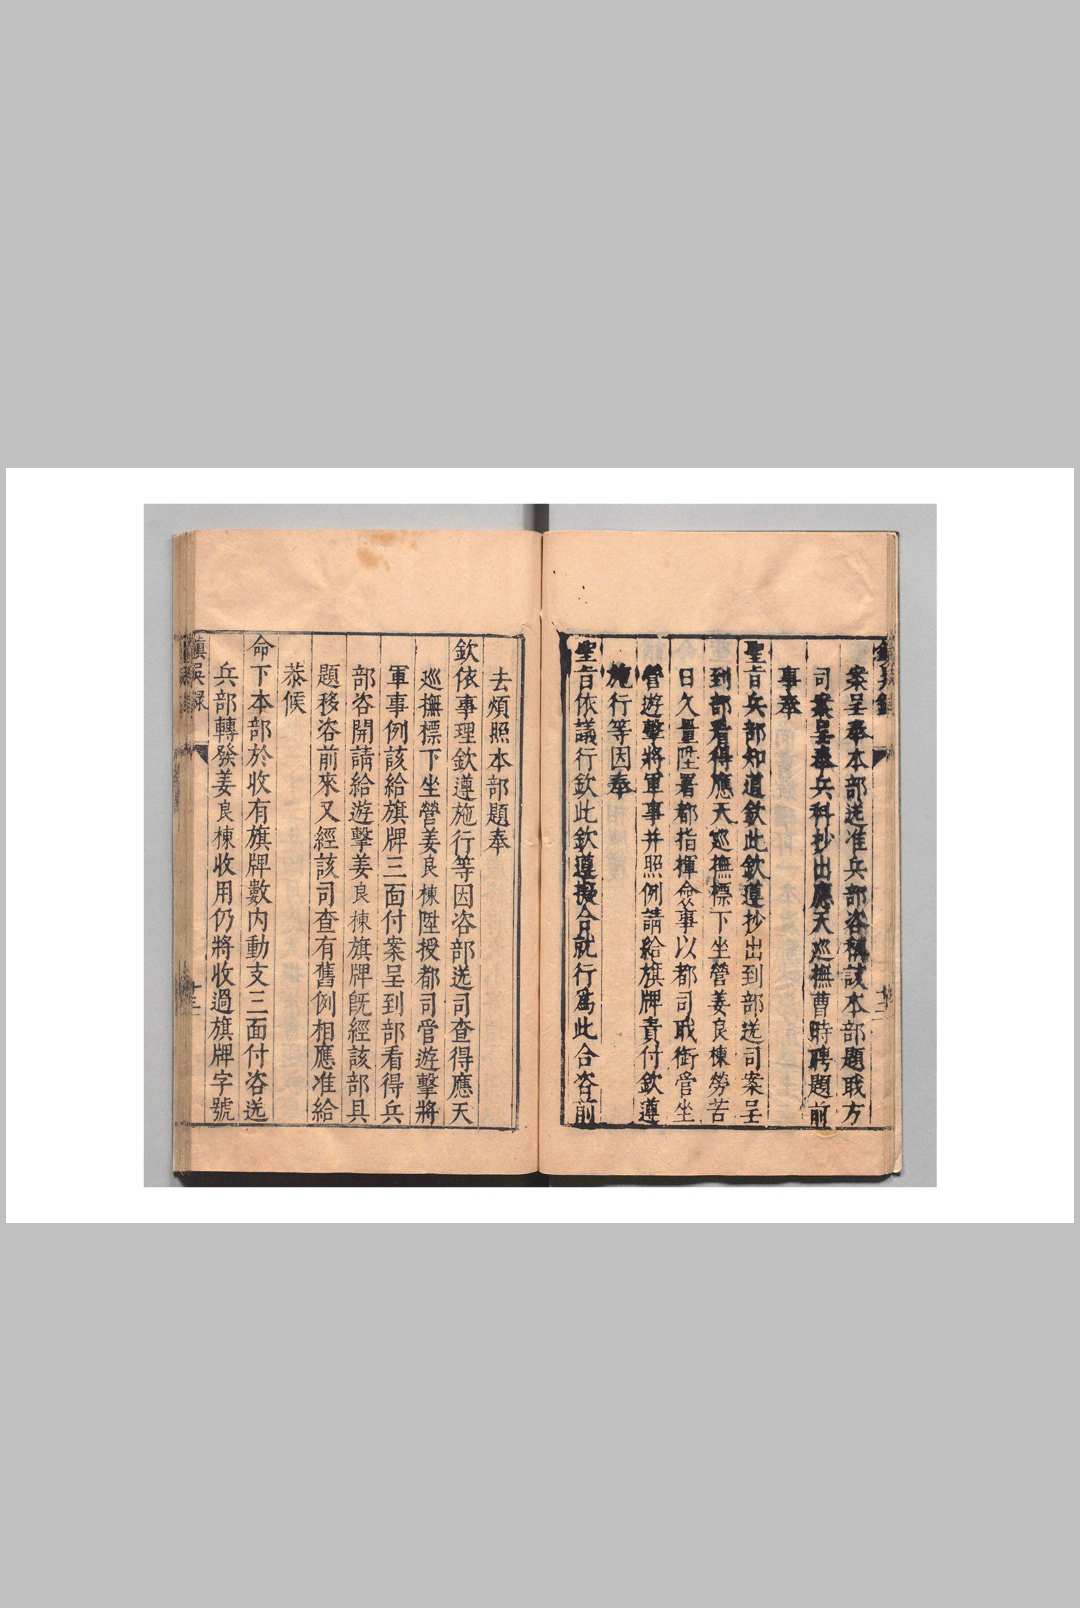 案呈奉本部送准兵部咨稱該本部題職方
司案呈奉兵科抄出應天巡撫曹時聘題前
事奉
聖旨兵部知道欽此欽遵抄出到部送司案呈
到部看得應天巡撫標下坐營姜良棟勞苦
日久量陞署都指揮僉事以都司職銜管坐
營遊擊將軍事并照例請給旗牌責付欽遵
施行等因奉
聖旨依議行欽此欽遵擬合就行爲此合咨前
去煩照本部題奉
欽依事理欽遵施行等因咨部送司查得應天
巡撫標下坐營姜良棟陞授都司管遊擊將
軍事例該給旗牌三面付案呈到部看得兵
部咨開請給遊擊姜良棟旗牌旣經該部具
題移咨前來又經該司查有舊例相應准給
恭候
命下本部於收有旗牌數內動支三面付咨送
兵部轉發姜良棟收用仍將收過旗牌字號
鎮吳録
十三